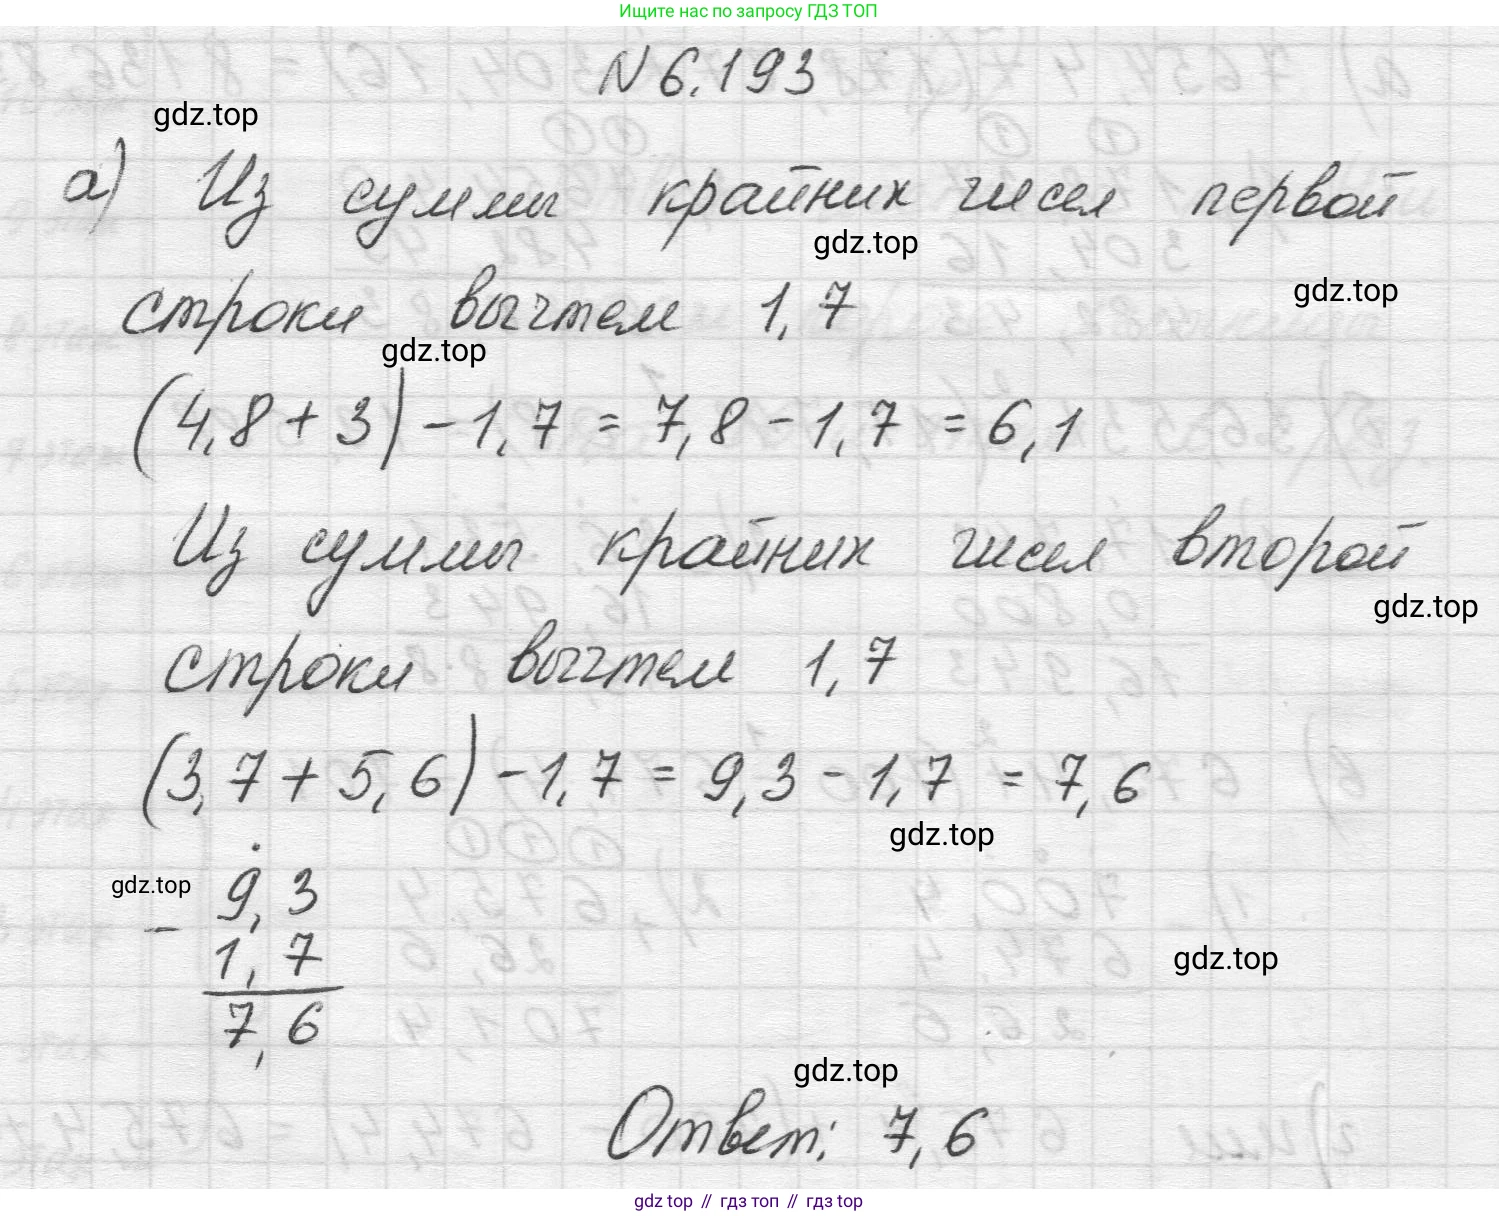 Ищите нас по запросу ГДЗ ТОП
N 6.193
gdz.top
а) Из суммы крайних чисел первой
gdz.top
gdz.top
строки вычтем 1,7
gdz.top
(4,8 + 3) - 1,7 = 7,8 - 1,7 = 6,1
Из суммы крайних чисел второй
gdz.top
строки вычтем 1,7
(3,7 + 5,6) - 1,7 = 9,3 - 1,7 = 7,6
gdz.top
gdz.top
9,3
-
1,7
gdz.top
7,6
gdz.top
Ответ: 7,6
gdz top // гдз топ // gdz top